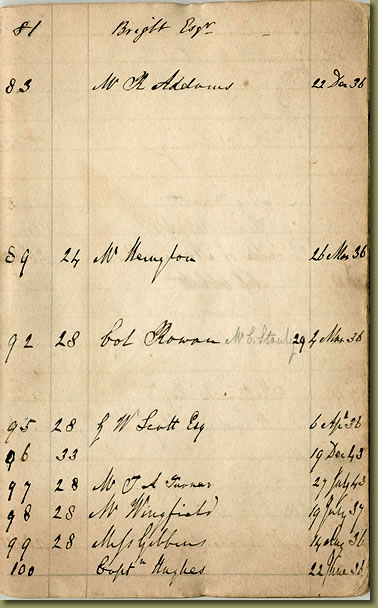 81 Bright Esqr
83 Mr R Addams 22 Dec 36
89 24 Mr Henryton 26 Mar 36
92 28 Col Rowan Mr C. Stanley 29 Mar 36
95 28 G W Scott Esq 6 Apl 36
96 33 19 Dec 43
97 28 Mr T A Turner 27 July 43
98 28 Mr Wingfield 19 July 37
99 28 Miss Gibbins 36
100 Captn Hughes 22 June 36